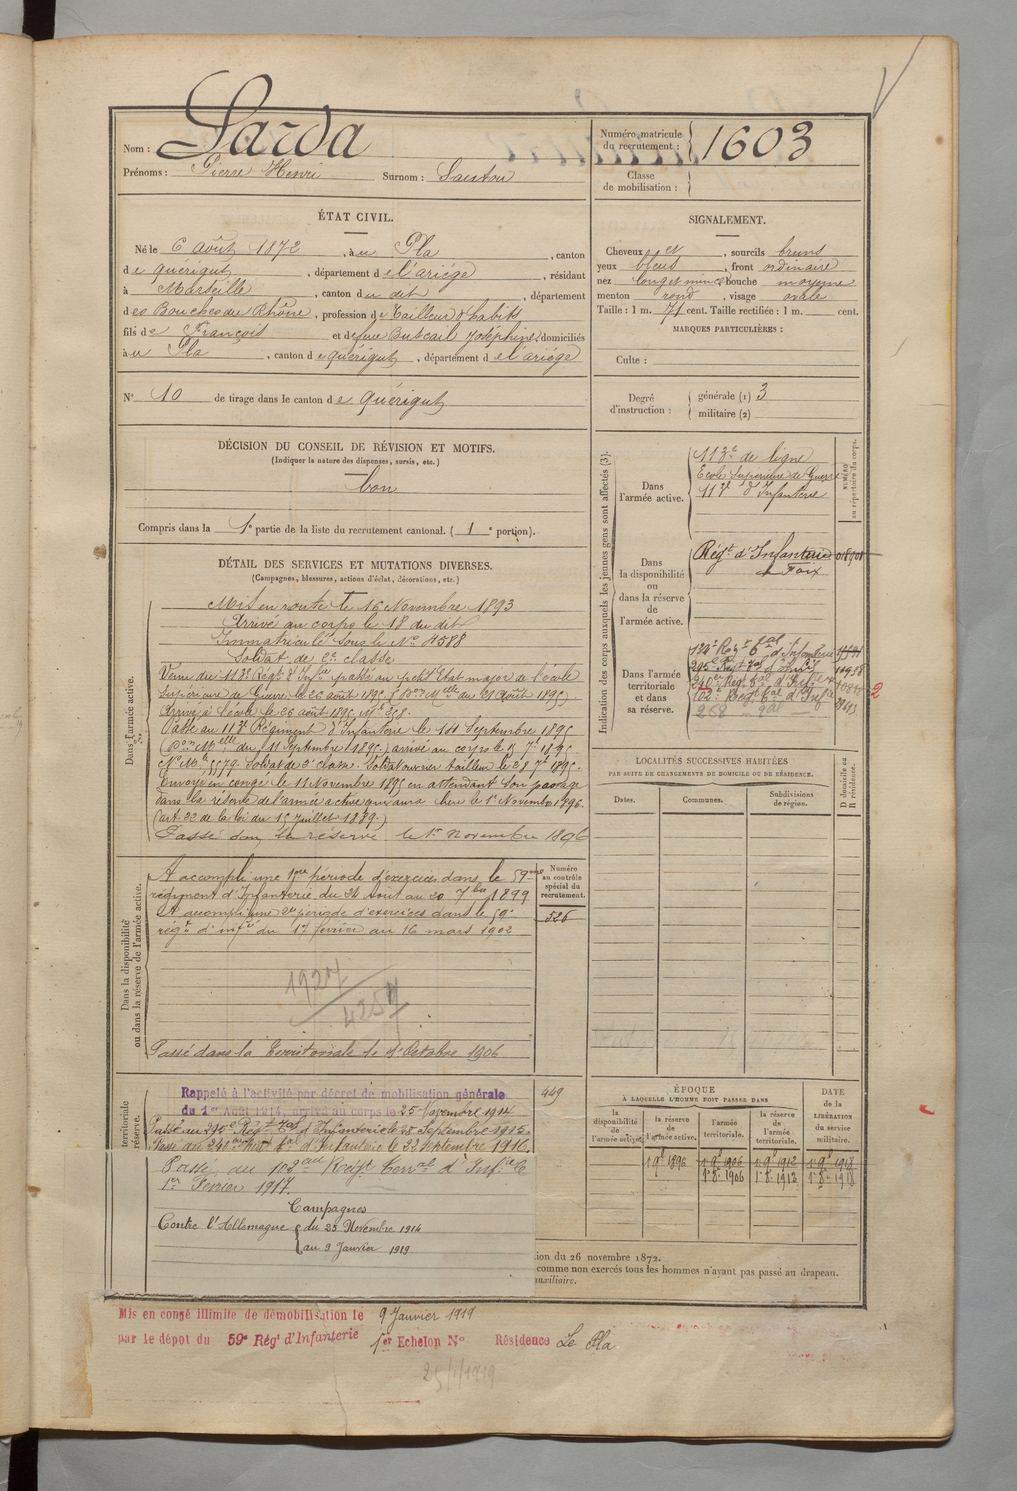 Nom : Sarda
Prénoms : Pierre Henri Surnom :
Numéro matricule du recrutement : 1603
Classe de mobilisation :
ÉTAT CIVIL.
Né le 6 Août 1872, à u Pla, canton
d e quérigut, département d e l'ariège, résidant
à Marseille, canton d u dit, département
d es Bouches du Rhône, profession d e tailleur d'habits
fils d e François et de feue Buscail Joséphine, domiciliés
à u Pla, canton d e quérigut, département d e l'ariège
N° 10 de tirage dans le canton d e quérigut
SIGNALEMENT.
Cheveux et, sourcils bruns
yeux bleus, front ordinaire
nez long et mince bouche moyenne
menton rond, visage ovale
Taille : 1 m. 71 cent. Taille rectifiée : 1 m. cent.
MARQUES PARTICULIÈRES :
Culte :
Degré d'instruction : générale (1) 3
militaire (2)
DÉCISION DU CONSEIL DE RÉVISION ET MOTIFS.
(Indiquer la nature des dispenses, sursis, etc.)
bon
Compris dans la 1e partie de la liste du recrutement cantonal. ( 1 e portion).
DÉTAIL DES SERVICES ET MUTATIONS DIVERSES.
(Campagnes, blessures, actions d'éclat, décorations, etc.)
Dans l'armée active.
Mis en route le 16 Novembre 1893
Arrivé au corps le 18 du dit
Immatriculé sous le No 4588
Soldat de 2e classe
Venu du 113e Régt d'Infie passé au petit Etat major de l'école
Supérieure de Guerre le 26 août 1895 (Don Mlle du 21 Août 1895)
Arrivé à l'école le 26 août 1895, No 358.
Passé au 117e Régiment d'Infanterie le 11 Septembre 1895
(Don Mlle du 11 Septembre 1895) arrivé au corps le 15 7e 1895
No Mle 5579. Soldat de 2e classe. Soldat ouvrier tailleur le 28 7e 1895.
Envoyé en congé le 11 Novembre 1895 en attendant son passage
dans la réserve de l'armée active qui aura lieu le 1er Novembre 1896.
(art. 22 de la loi du 15 Juillet 1889.)
Passé dans la réserve le 1er Novembre 1896
Dans la disponibilité ou dans la réserve de l'armée active.
A accompli une 1ère période d'exercices dans le 59me
régiment d'Infanterie du 24 Août au 20 7bre 1899
A accompli une 2e période d'exercices dans le 59e
régt d'infie du 17 février au 16 mars 1902
1927
4257
Passé dans la Territoriale le 1er Octobre 1906
Numéro au contrôle spécial du recrutement.
526
449
territoriale réserve.
Rappelé à l'activité par décret de mobilisation générale
du 1er Août 1914, arrivé au corps le 25 Novembre 1914
Passé au 215e Régt tal d'Infanterie le 28 Septembre 1915.
Passé au 240e Régt tal d'Infanterie le 22 Septembre 1916.
Passé au 103eme Régt Terral d'Infie le
1er Février 1917.
Campagnes
Contre l'Allemagne du 25 Novembre 1914
au 9 Janvier 1919
Indication des corps auxquels les jeunes gens sont affectés (3).
Dans l'armée active.
113e de ligne
Ecole Supérieure de Guerre
117e d'Infanterie
NUMÉRO au répertoire du corps.
Dans la disponibilité ou dans la réserve de l'armée active.
Régt d'Infanterie
de Foix
Dans l'armée territoriale et dans sa réserve.
2
LOCALITÉS SUCCESSIVES HABITÉES
PAR SUITE DE CHANGEMENTS DE DOMICILE OU DE RÉSIDENCE.
Dates. Communes. Subdivisions de région.
D domicile ou R résidence.
ÉPOQUE
À LAQUELLE L'HOMME DOIT PASSER DANS
la disponibilité de l'armée active.
la réserve de l'armée active.
l'armée territoriale.
la réserve de l'armée territoriale.
DATE de la LIBÉRATION du service militaire.
1er 9e 1896 1er 9e 1906 1er 9e 1912 1er 9e 1918
1er 8e 1906 1er 8e 1912 1er 8e 1918
tion du 26 novembre 1872.
comme non exercés tous les hommes n'ayant pas passé au drapeau.
auxiliaire.
Mis en congé illimité de démobilisation le 9 Janvier 1919
par le dépot du 59e Régt d'Infanterie 1er Echelon No Résidence Le Pla
25/1/1919